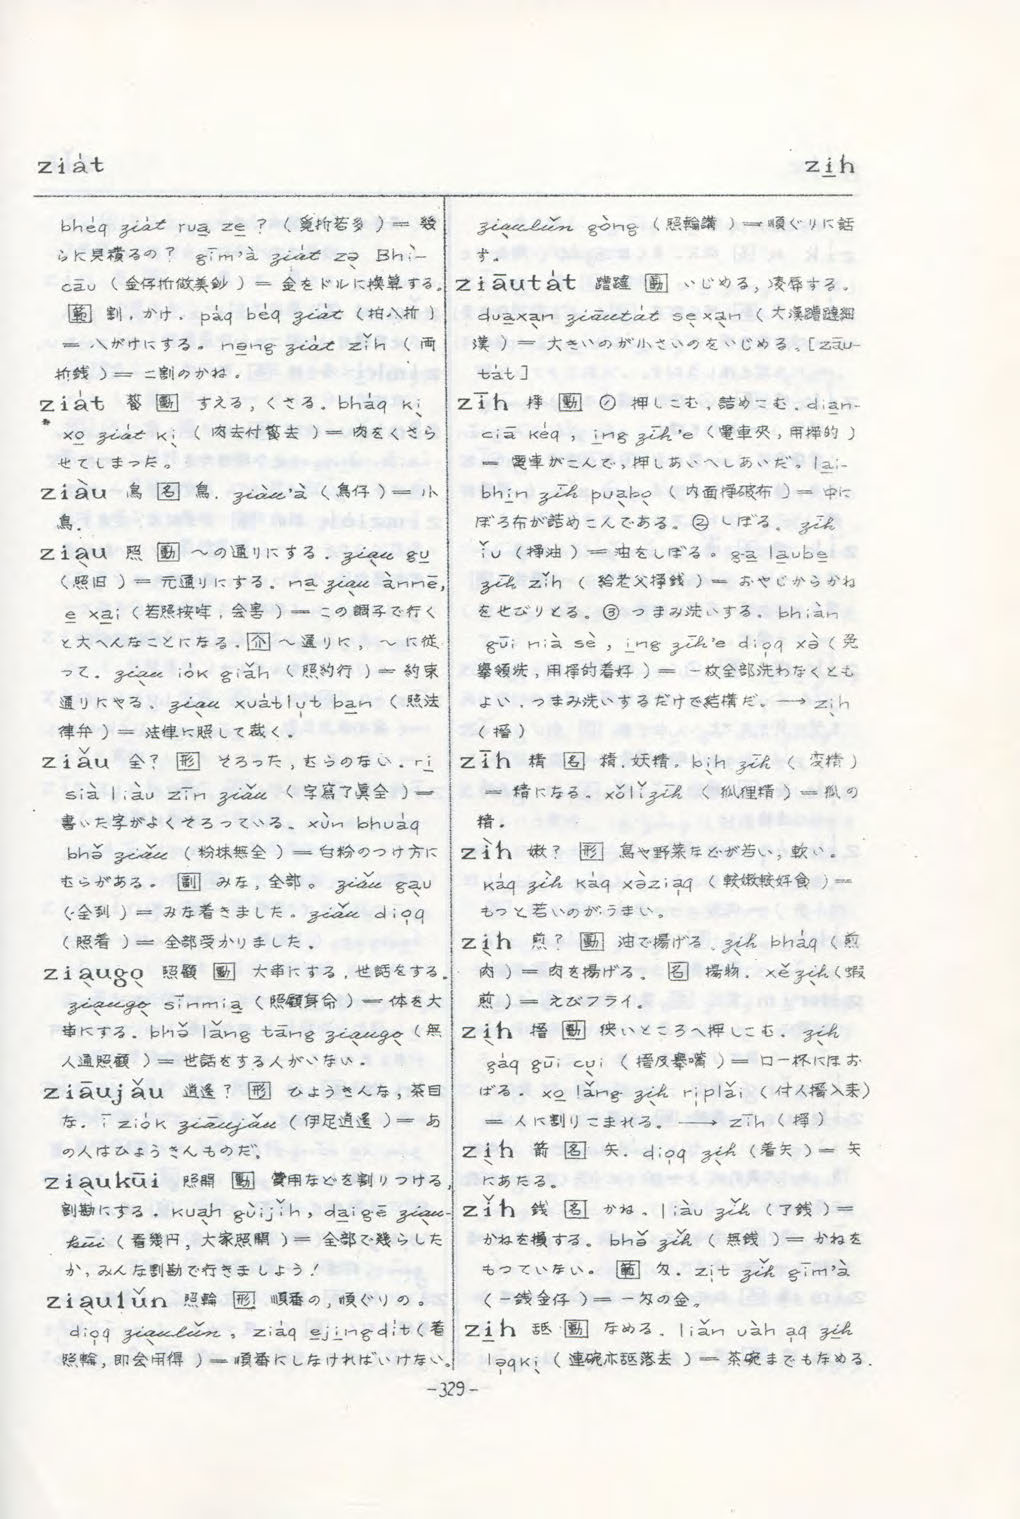 zia̍t
zi̱h
bhéq zia̍t rua̱ ze̱ ? (覓折若多) ＝ 幾
らに見積るの？ gīm'à zia̍t zə̱ Bhì-
cāu (金仔折做美鈔) ＝ 金をドルに換算する。
割，かけ． páq béq zia̍t (拍八折)
＝ 八がけにする。 nə̱ng zia̍t zǐh (両
折銭) ＝ 二割のかね．
zia̍t 動 すえる，くさる． bháq kị
xo̱ zia̍t kị (肉去付 去) ＝ 肉をくさら
せてしまった。
ziàu 鳥 名 鳥． ziáu'à (鳥仔) ＝ 小
鳥．
ziạu 照 動 ～の通りにする． ziạu gu̱
(照旧) ＝ 元通りにする． na̱ ziạu ànnē,
e̱ xa̱i (若照按哖，会害) ＝ この調子で行く
と大へんなことになる． 介 ～通りに，～に従
って． ziạu iók giǎh (照約行) ＝ 約束
通りにやる． ziạu xuátlu̍t ba̱n (照法
律弁) ＝ 法律に照して裁く。
ziǎu 全? 形 そろった，むらのない． ri̱
sià liàu zīn ziǎu (字寫了眞全) ＝
書いた字がよくそろっている。 xùn bhuáq
bhə̌ ziǎu (粉抹無全) ＝ 白粉のつけ方に
むらがある。 副 みな，全部。 ziǎu gạu
(全到) ＝ みな着きました． ziǎu dio̍q
(照着) ＝ 全部受かりました．
ziạugọ 照顧 動 大事にする，世話をする．
ziạugọ sīnmia̱ (照顧身命) ＝ 体を大
事にする． bhə̌ lǎng tāng ziạugọ (無
人通照顧) ＝ 世話をする人がいない．
ziāujǎu 逍遙? 形 ひょうきんな，茶目
な． ī ziók ziāujǎu (伊足逍遙) ＝ あ
の人はひょうきんものだ。
ziạukūi 照開 動 費用などを割りつける，
割勘にする． kuạh gùijǐh, da̱igē ziạu-
kūi (看幾円，大家照開) ＝ 全部で幾らした
か，みんな割勘で行きましょう！
ziạulǔn 照輪 形 順番の，順ぐりの。
dio̍q ziạulǔn, ziáq e̱ji̱ngdít (着
照輪，即会用得) ＝ 順番にしなければいけない。
ziạulǔn gòng (照輪講) ＝ 順ぐりに話
す．
ziāutát 蹧躂 動 いじめる，凌辱する．
dua̱xạn ziāutát sẹxạn (大漢蹧躂細
漢) ＝ 大きいのが小さいのをいじめる．[zāu-
tát]
zīh 㨃 動 ① 押しこむ，詰めこむ． dia̱n-
ciā kéq, i̱ng zīh'e (電車夾，用 的)
＝ 電車がこんで，押しあいへしあいだ。 la̱i-
bhi̱n zīh puạbọ (内面 破布) ＝ 中に
ぼろ布が詰めこんである． ② しぼる． zīh
ǐu (油) ＝ 油をしぼる。 ga̱ la̱ube̱
zīh zǐh (給老父 銭) ＝ おやじからかね
をせびりとる。 ③ つまみ洗いする． bhiàn
gūi nià sè, i̱ng zīh'e dio̍q xə̀ (免
擧領洗，用 的着好) ＝ 一枚全部洗わなくとも
よい．つまみ洗いするだけで結構だ．→ zịh
(搢)
zīh 精 名 精．妖精． bịh zīh (変精)
＝ 精になる． xǒlǐzīh (狐狸精) ＝ 狐の
精．
zìh 嫩? 形 鳥や野菜などが若い，軟い。
káq zìh káq xəziạq (較嫩較好食) ＝
もっと若いのがうまい。
zịh 煎? 動 油で揚げる． zịh bháq (煎
肉) ＝ 肉を揚げる． 名 揚物． xě zịh (蝦
煎) ＝ えびフライ．
zịh 搢 動 狭いところへ押しこむ． zịh
gáq gūi cụi (搢及擧嘴) ＝ 口一杯にほお
ばる． xo̱ lǎng zịh riplǎi (付人搢入来)
＝ 人に割りこまれる． → zīh (㨃)
zịh 箭 名 矢． dio̍q zịh (着矢) ＝ 矢
にあたる。
zǐh 銭 名 かね． liàu zǐh (了銭) ＝
かねを損する。 bhə̌ zǐh (無銭) ＝ かねを
もっていない。 匁． zit zǐh gīm'à
(一銭金仔) ＝ 一匁の金。
zi̱h 舐 動 なめる． liǎn uàh ạq zi̱h
lə̍qkị (連碗亦舐落去) ＝ 茶碗までもなめる．
-329-